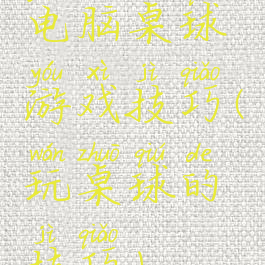 电脑桌球
yóu xì jì qiǎo
游戏技巧(
wán zhuō qiú de
玩桌球的
jì qiǎo
技巧)